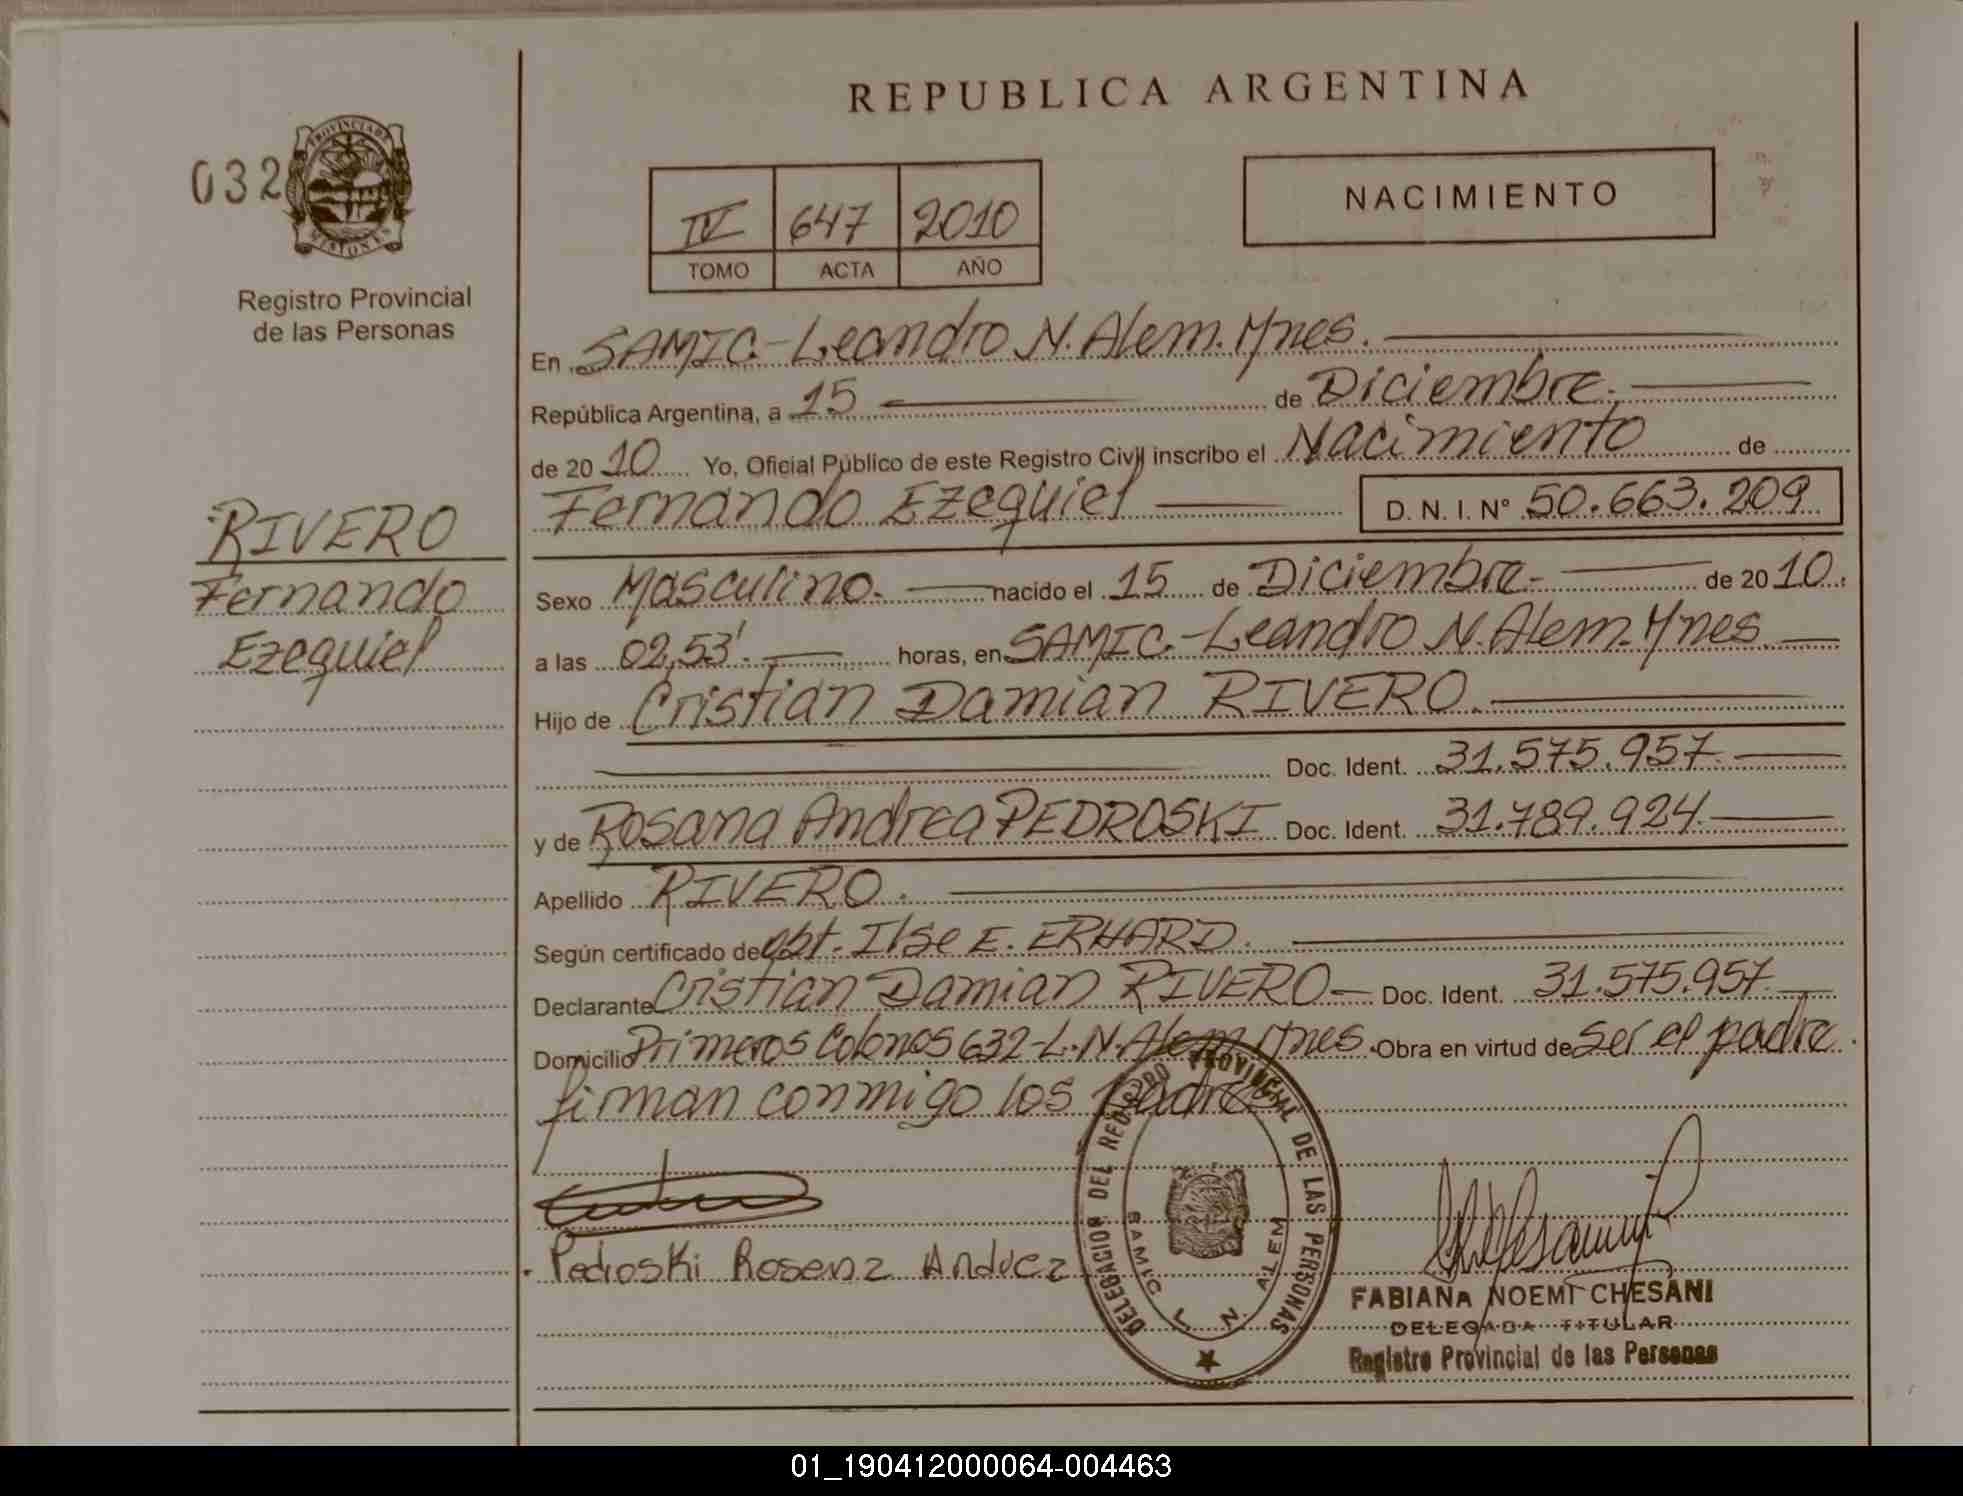 REPUBLICA ARGENTINA
032
PROVINCIA DE
MISIONES
Registro Provincial
de las Personas
IV 647 2010
TOMO ACTA AÑO
NACIMIENTO
RIVERO
Fernando
Ezequiel
En SAMIC.-Leandro N. Alem. Mnes.
República Argentina, a 15 de Diciembre.
de 2010 Yo, Oficial Público de este Registro Civil inscribo el Nacimiento de
Fernando Ezequiel D. N. I. Nº 50.663.209
Sexo Masculino. nacido el 15 de Diciembre. de 2010.
a las 02,53'. horas, en SAMIC.-Leandro N. Alem. Mnes
Hijo de Cristian Damian RIVERO.
Doc. Ident. 31.575.957.
y de Rosana Andrea PEDROSKI Doc. Ident. 31.789.924.
Apellido RIVERO.
Según certificado de obt. Ilse E. ERHARD.
Declarante Cristian Damian RIVERO Doc. Ident. 31.575.957.
Domicilio Primeros Colonos 632-L.N. Alem Mnes. Obra en virtud de ser el padre.
firman conmigo los Padres
DELEGACION DEL REGISTRO PROVINCIAL DE LAS PERSONAS
SAMIC L. N. ALEM
Pedroski Rosana Andrea
FABIANA NOEMI CHESANI
DELEGADA TITULAR
Registro Provincial de las Personas
01_190412000064-004463